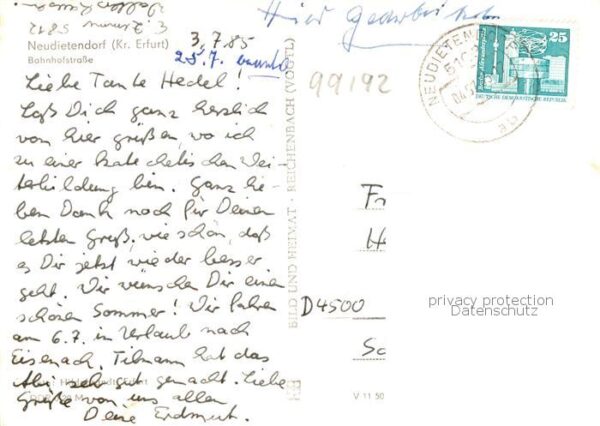 Hier gearbeitet
Neudietendorf (Kr. Erfurt)
Bahnhofstraße
3.7.85
25.7.
99/92
Liebe Tante Hedel!
Laß Dich ganz herzlich
von hier grüßen, wo ich
zu einer katechetischen Wei-
terbildung bin. Ganz lie-
ben Dank noch für Deinen
letzten Gruß. wie schön, daß
es Dir jetzt wieder besser
geht. Wir wünschen Dir einen
schönen Sommer! Wir fahren
am 6.7. in Urlaub nach
Eisenach. Tilmann hat das
Abi sehr gut gemacht. Liebe
Grüße von uns allen
Deine Erdmut.
BILD UND HEIMAT · REICHENBACH (VOGTL)
V 11 50
NEUDIETENDORF
25
DEUTSCHE DEMOKRATISCHE REPUBLIK
Fr
H
D4500
Sc
privacy protection
Datenschutz